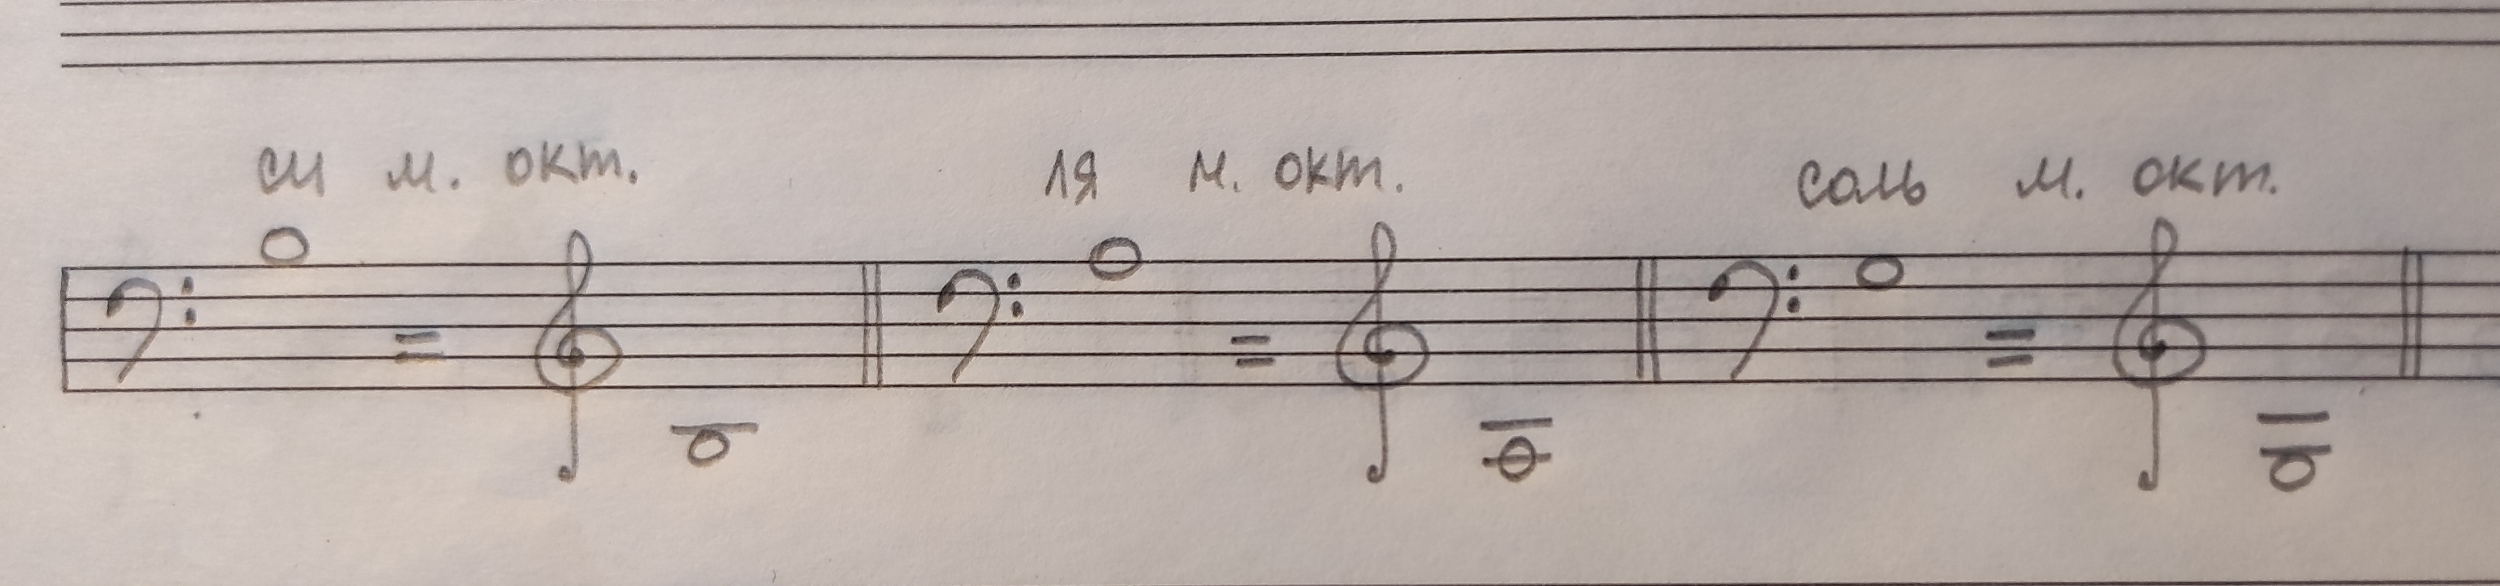 си м. окт. ля м. окт. соль м. окт.